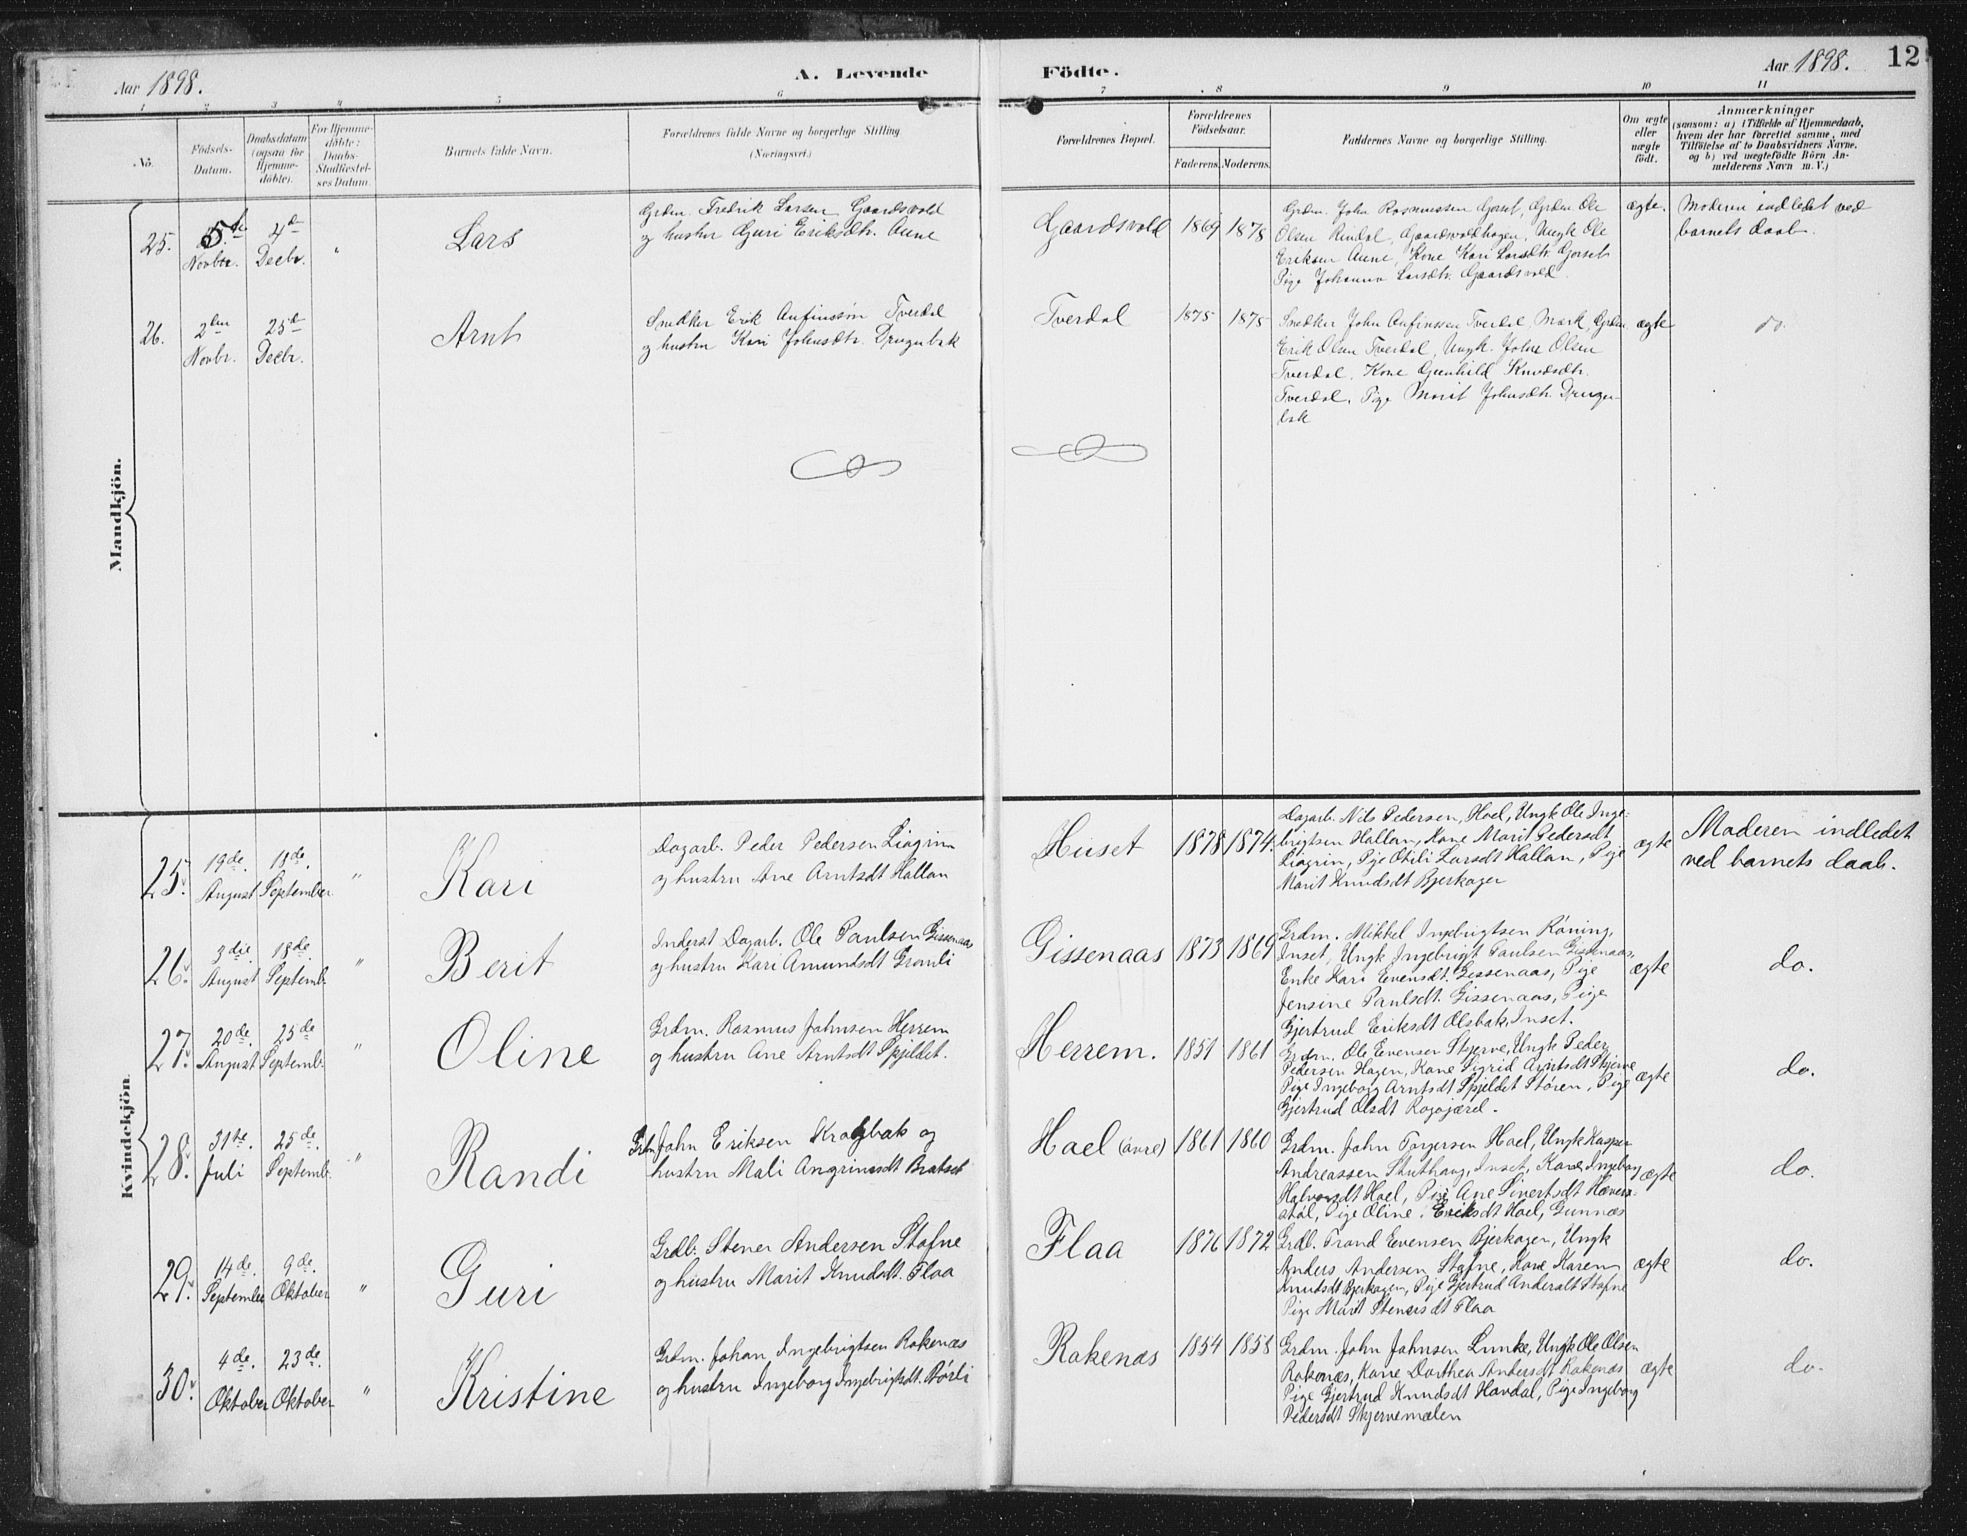 Aar 1898.
A. Levende Födte.
Aar 1898.
12
1 2 3 4 5 6 7 8 9 10 11
No.
Födsels-
Datum.
Daabsdatum
(ogsaa for
Hjemme-
döbte).
For Hjemme-
döbte:
Daabs-
Stadfæstel-
ses Datum.
Barnets fulde Navn.
Forældrenes fulde Navne og borgerlige Stilling
(Næringsvei.)
Forældrenes Bopæl.
Forældrenes
Födselsaar.
Faderens. Moderens.
Faddernes Navne og borgerlige Stilling.
Om ægte
eller
uægte
födt.
Anmærkninger
(saasom: a) i Tilfælde af Hjemmedaab,
hvem der har forrettet samme, med
Tilföielse af to Daabsvidners Navne,
og b) ved uægtefödte Börn An-
melderens Navn m. V.)
Mandkjön.
25.
5te
Novbr.
4de
Decbr.
"
Lars
Grdm. Fredrik Larsen Gaardsvold
og hustru Guri Eriksdtr. Aune
Gaardsvold
1869
1878
Grdm. John Rasmussen Gorset, Grdm Ole
Olsen Rindal, Gaardsvoldhagen, Ungk Ole
Eriksen Aune, Kone Kari Larsdtr. Gorset
Pige Johanna Larsdtr. Gaardsvold.
ægte.
Moderen indledet ved
barnets daab.
26.
2den
Novbr.
25de
Decbr.
Arnt
Snedker Erik Anfinssøn Tverdal
og hustru Kari Johnsdtr. Drugubak
Tverdal
1875
1875
Snedker John Anfinssen Tverdal, Mærk, Grdm
Erik Olsen Tverdal, Ungk. John Olsen
Tverdal, Kone Gunhild Knudsdtr.
Tverdal, Pige Marit Johnsdtr. Drugu-
bak
ægte
do.
Kvindekjön.
25.
19de
August
18de
September
"
Kari
Dagarb. Peder Pedersen Liagrin
og hustru Ane Arntsdt Hallan
Huset
1878
1874.
Dagarb. Nils Pedersen, Hoel, Ungk Ole Inge-
brigtsen Hallan, Kone Marit Pedersdt
Liagrin, Pige Otili Larsdt Hallan, Pige
Marit Knudsdt Bjerkager
ægte
Moderen indledet
ved barnets daab.
26.
3die
August
18de
Septemb.
"
Berit
Inderst Dagarb. Ole Paulsen Gissenaas
og hustru Kari Amundsdt Gronli
Gissenaas
1873
1869
Grdm. Mikkel Ingebrigtsen Røning,
Inset, Ungk Ingebrigt Paulsen Gissenaas,
Enke Kari Evensdt. Gissenaas, Pige
Jensine Paulsdt. Gissenaas, Pige
Gjertrud Eriksdt Olsbak, Inset.
ægte
do.
27.
20de
August
25de
Septemb.
"
Oline
Grdm. Rasmus Johnsen Herrem
og hustru Ane Arntsdt Spjeldet.
Herrem.
1851
1861
Grdm. Ole Evensen Skjerve, Ungk Peder
Pedersen Hagen, Kone Sigrid Arntsdt Skjerve
Pige Ingeborg Arntsdt Spjeldet Støren, Pige
Gjertrud Olsdt Rogogjerd.
ægte
do.
28.
31te
Juli
25de
Septemb.
"
Randi
Grdm John Eriksen Krogbak og
hustru Mali Angrimsdt Bratset
Hoel (øvre)
1861
1860
Grdm. John Torgersen Hoel, Ungk Kasper
Andreassen Stuthaug, Inset, Kone Ingeborg
Halvorsdt Hoel, Pige Ane Sivertsdt Hævers-
støl, Pige Oline Eriksdt Hoel, Gunnes
ægte
do.
29.
14de
September
9de
Oktober
"
Guri
Grdb. Stener Andersen Stafne
og hustru Marit Knudsdt. Flaa
Flaa
1876
1872
Grdb. Trond Evensen Bjerkagen, Ungk
Anders Andersen Stafne, Kone Karen
Knudsdt Bjerkagen, Pige Gjertrud Andersdt Stafne
Pige Marit Stenersdt Flaa
ægte
do.
30.
4de
Oktober
23de
Oktober
"
Kristine
Grdm. Johan Ingebrigtsen Rokenæs
og hustru Ingeborg Ingebrigtsdt. Børli
Rokenæs
1854
1858
Grdm. John Johnsen Lunke, Ungk Ole Olsen
Rokenæs, Kone Dorthea Andersdt Rokenæs
Pige Gjertrud Knudsdt Havdal, Pige Ingeborg
Pedersdt Skjervemælen
ægte
do.